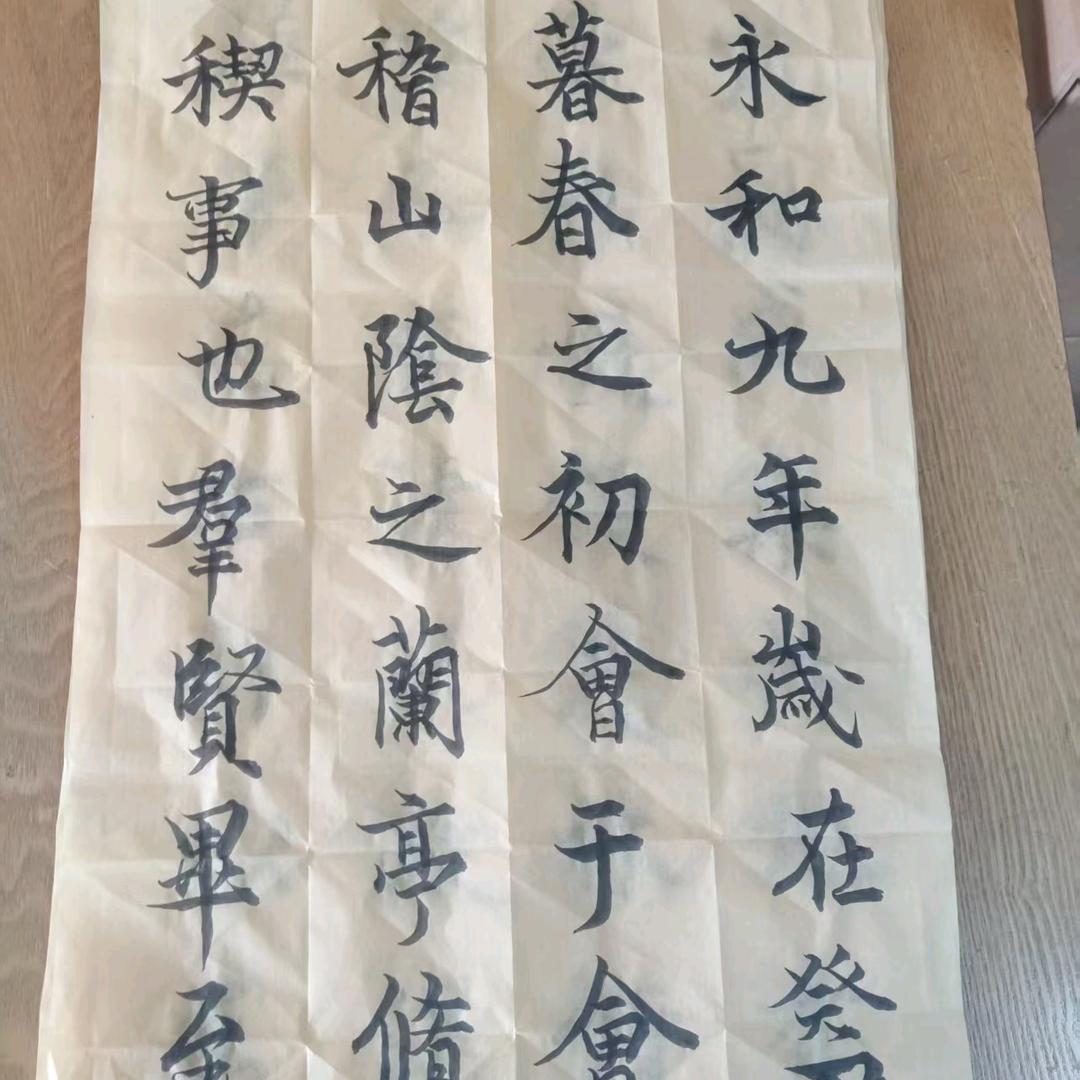 永和九年歲在癸
暮春之初會于會
稽山陰之蘭亭脩
稧事也羣賢畢至